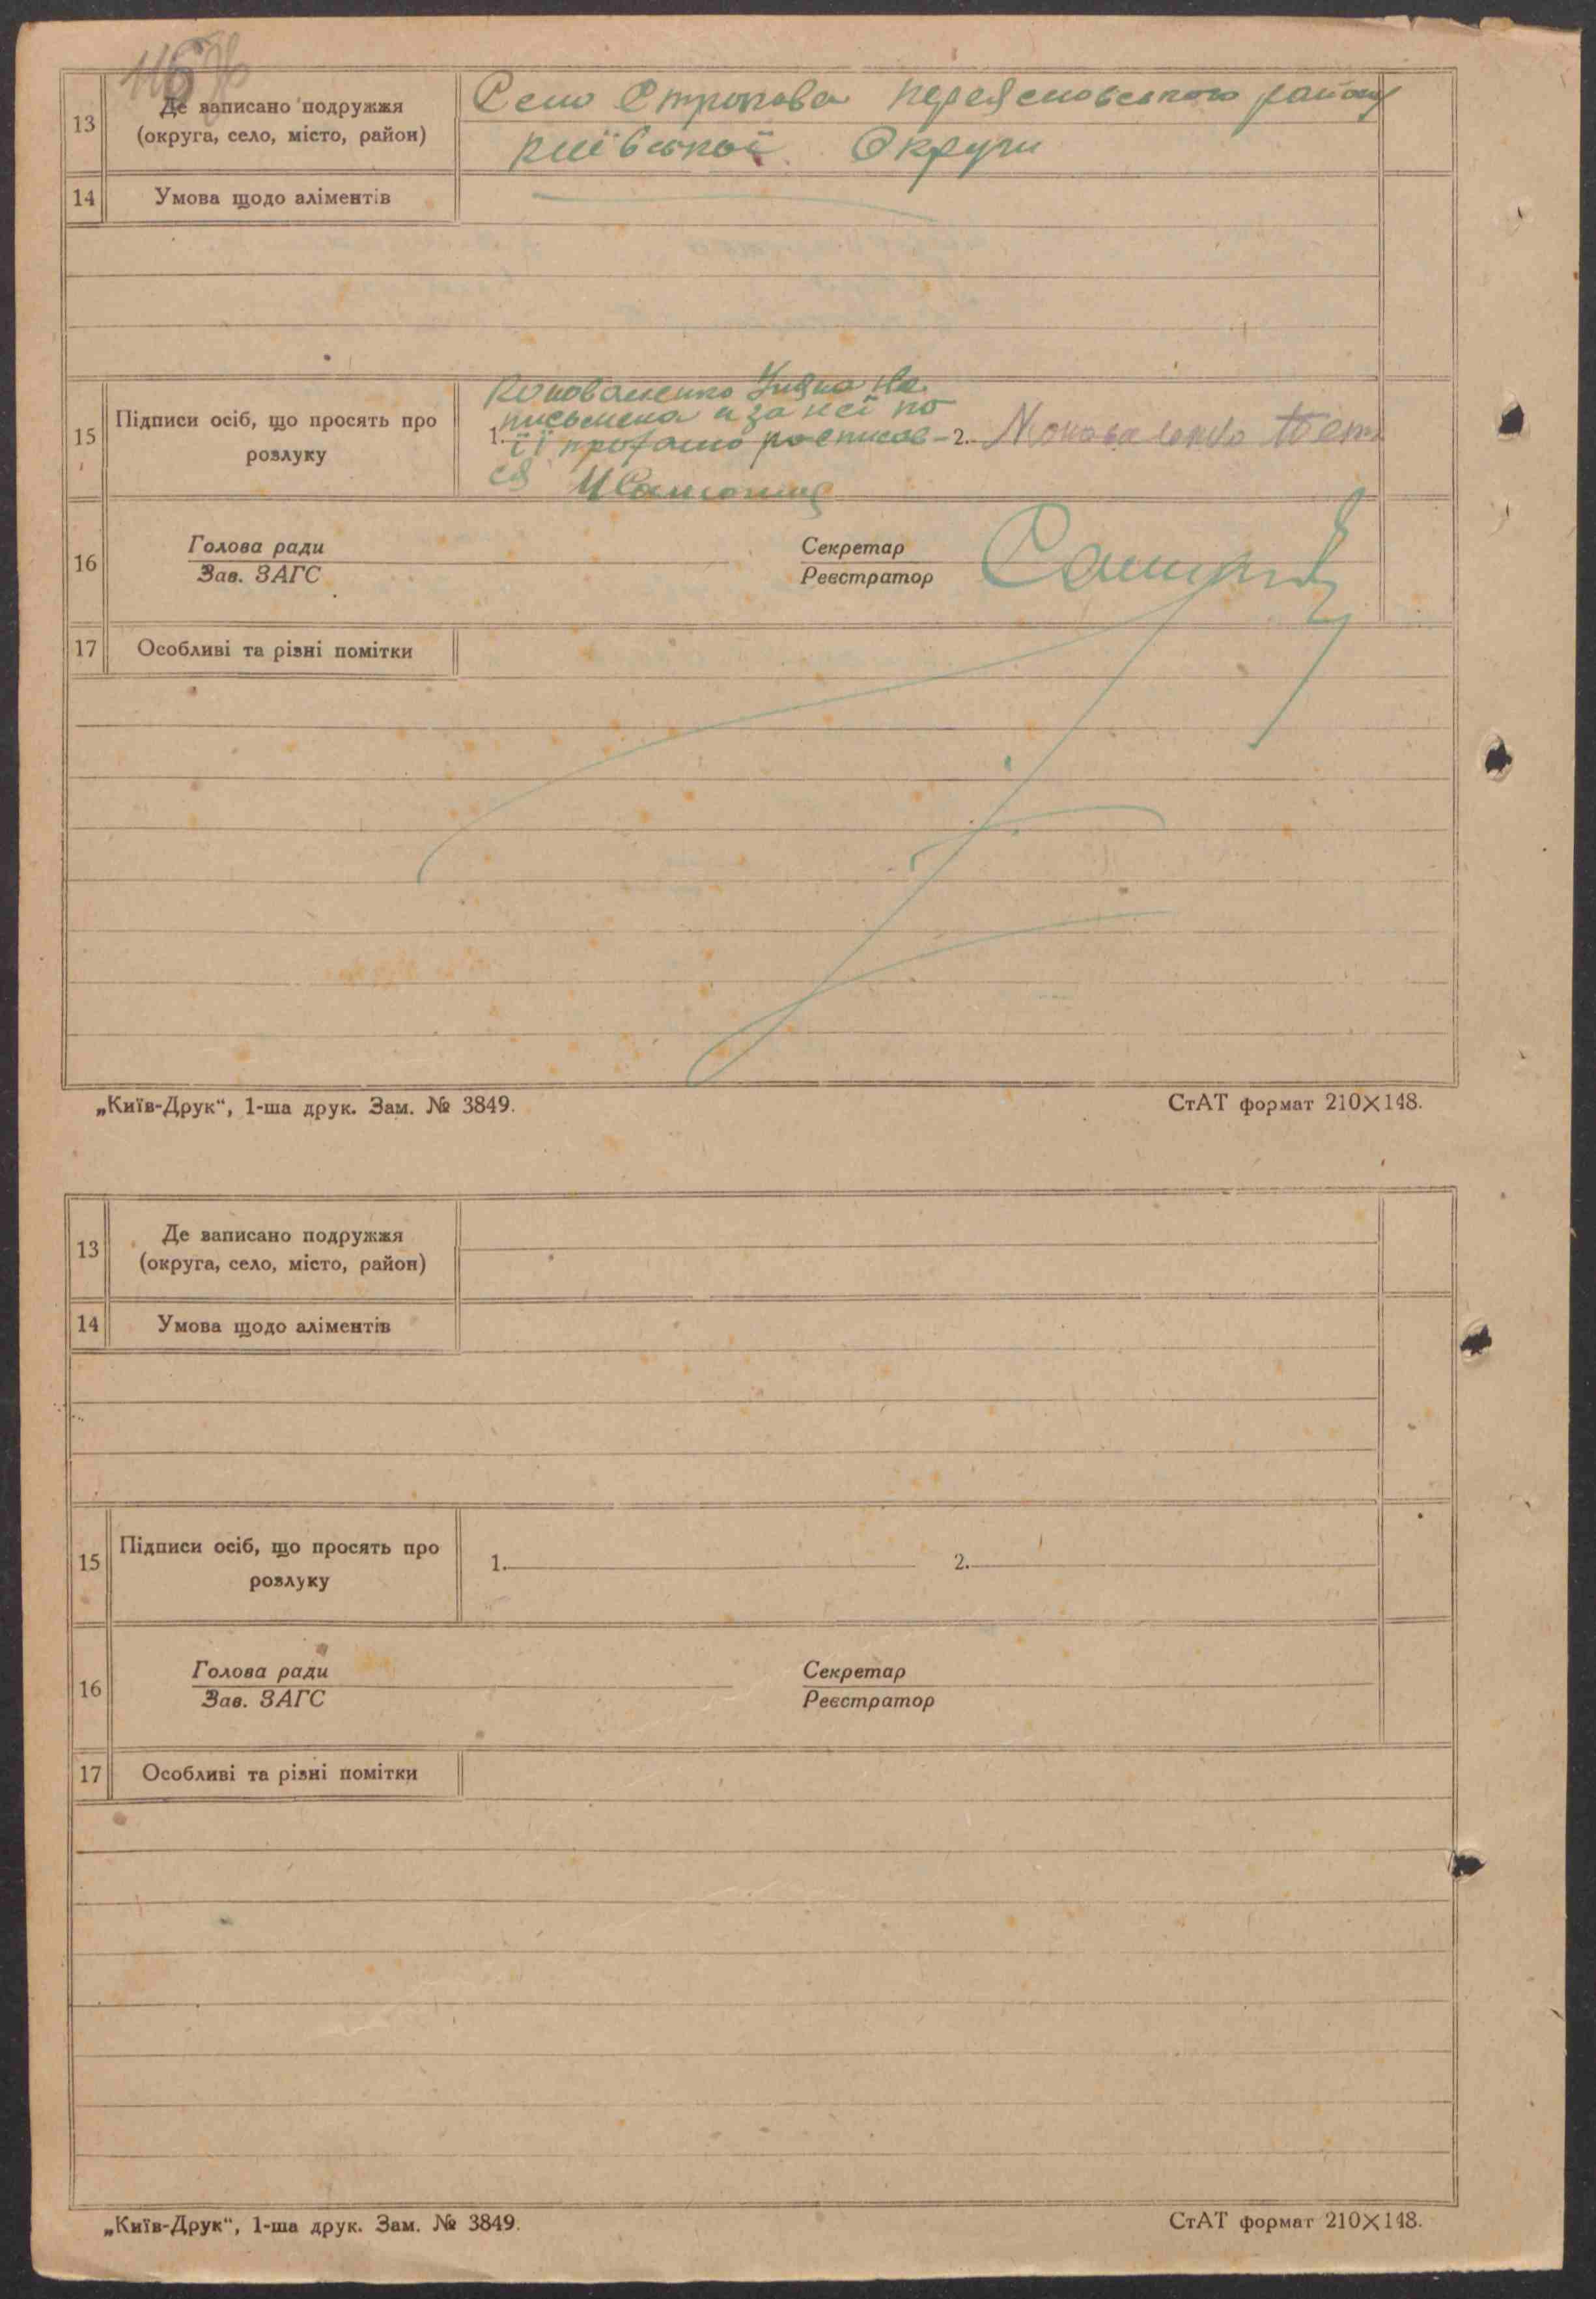 116
13 Де записано подружжя
(округа, село, місто, район)
Село Строкова Переясловського району
київської Округи
14 Умова щодо аліментів
15 Підписи осіб, що просять про
розлуку
Коноваленко не
письмена а за неї по
1. її прозьбі росписав- 2. Коноваленко
ся
16 Голова ради
Зав. ЗАГС
Секретар
Реєстратор
17 Особливі та різні помітки
„Київ-Друк“, 1-ша друк. Зам. № 3849. СтАТ формат 210×148.
13 Де записано подружжя
(округа, село, місто, район)
14 Умова щодо аліментів
15 Підписи осіб, що просять про
розлуку
1. 2.
16 Голова ради
Зав. ЗАГС
Секретар
Реєстратор
17 Особливі та різні помітки
„Київ-Друк“, 1-ша друк. Зам. № 3849. СтАТ формат 210×148.